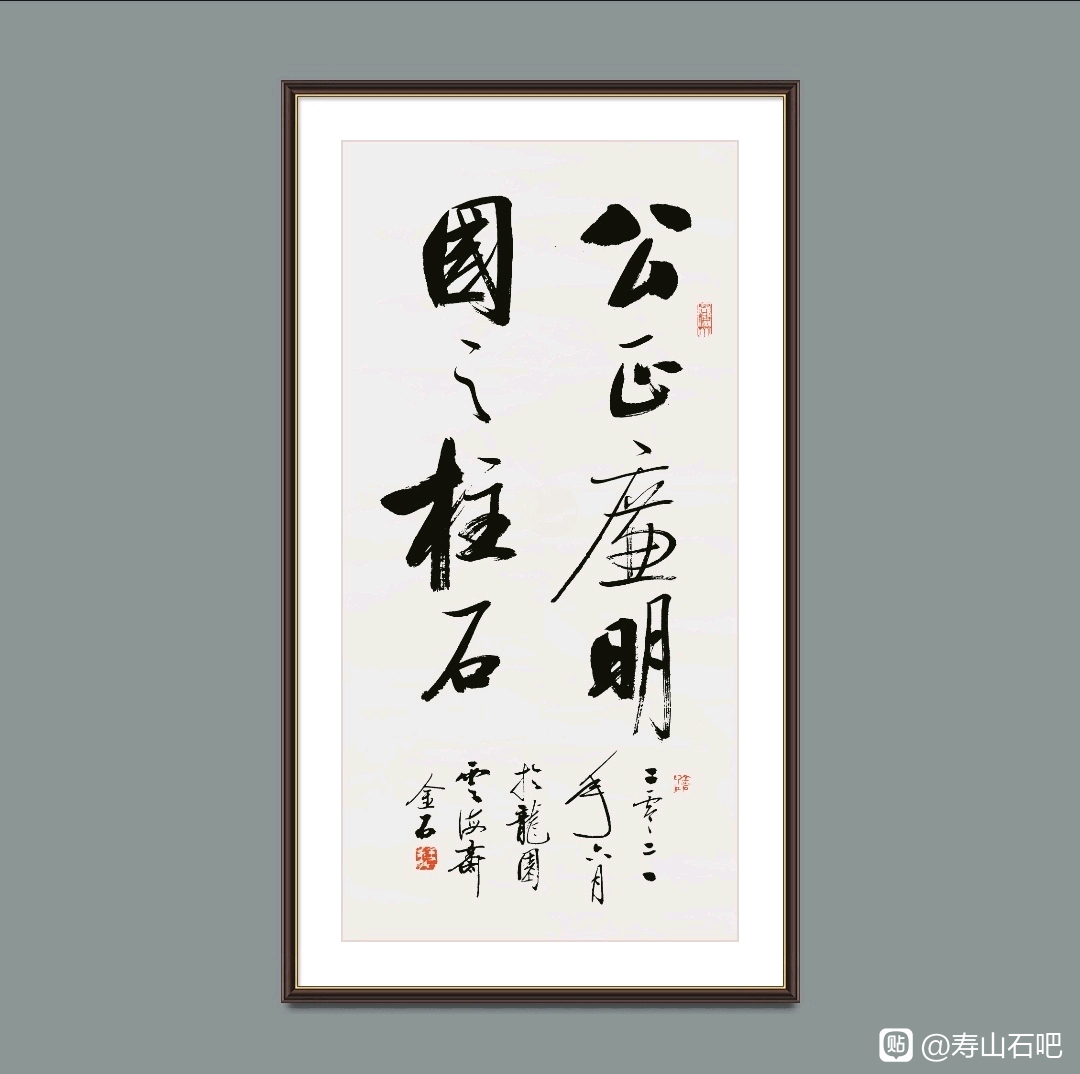 公正廉明
國之柱石
二零二一
年六月
於龍園
雲海齋
金石
贴 @寿山石吧